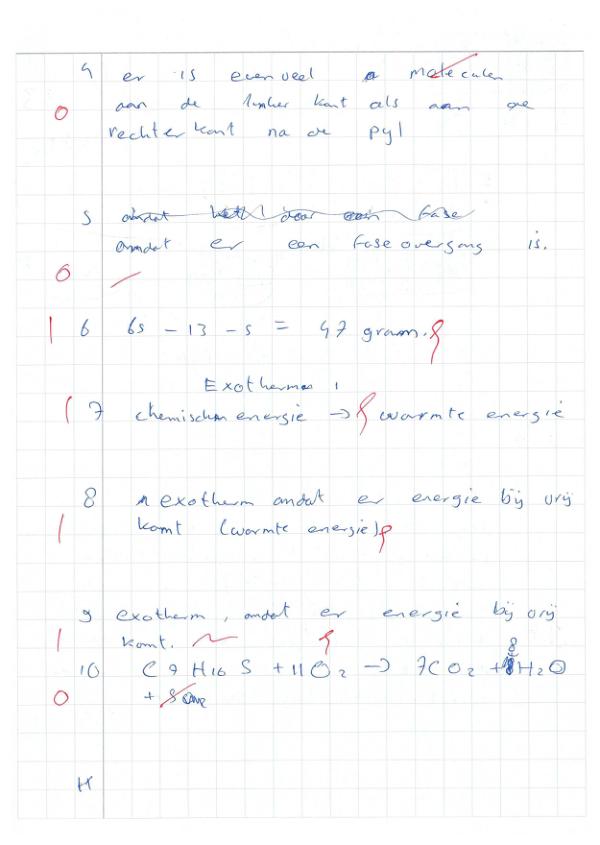 4 er is evenveel moleculen
0 aan de linker kant als aan de
rechter kant na de pyl
5 omdat het door een fase
omdat er een fase overgang is.
0
1 6 65 - 13 - 5 = 47 gram.
Exotherm
1 7 chemischen energie -> warmte energie
8 exotherm omdat er energie bij vrij
1 komt (warmte energie)
9 exotherm, omdat er energie bij vrij
1 komt.
10 C 9 H16 S + 11 O2 -> 7CO2 + 8 H2O
0 +